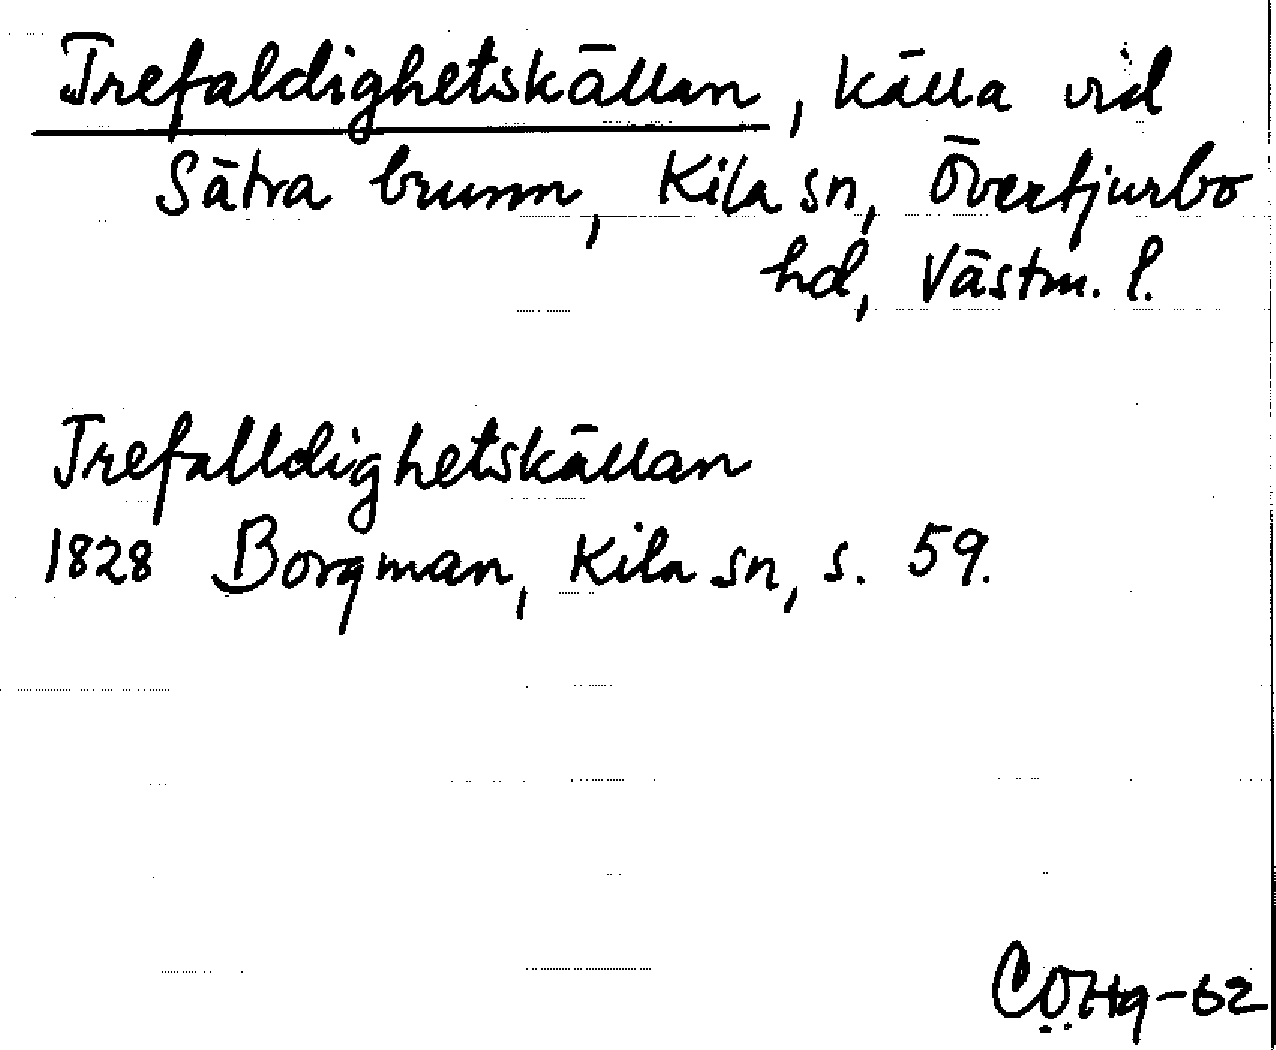 Trefaldighetskällan, källa vid
Sätra brunn, Kila sn, Övertjurbo
hd, Västm. l.
Trefalldighetskällan
1828 Borgman, Kila sn, s. 59.